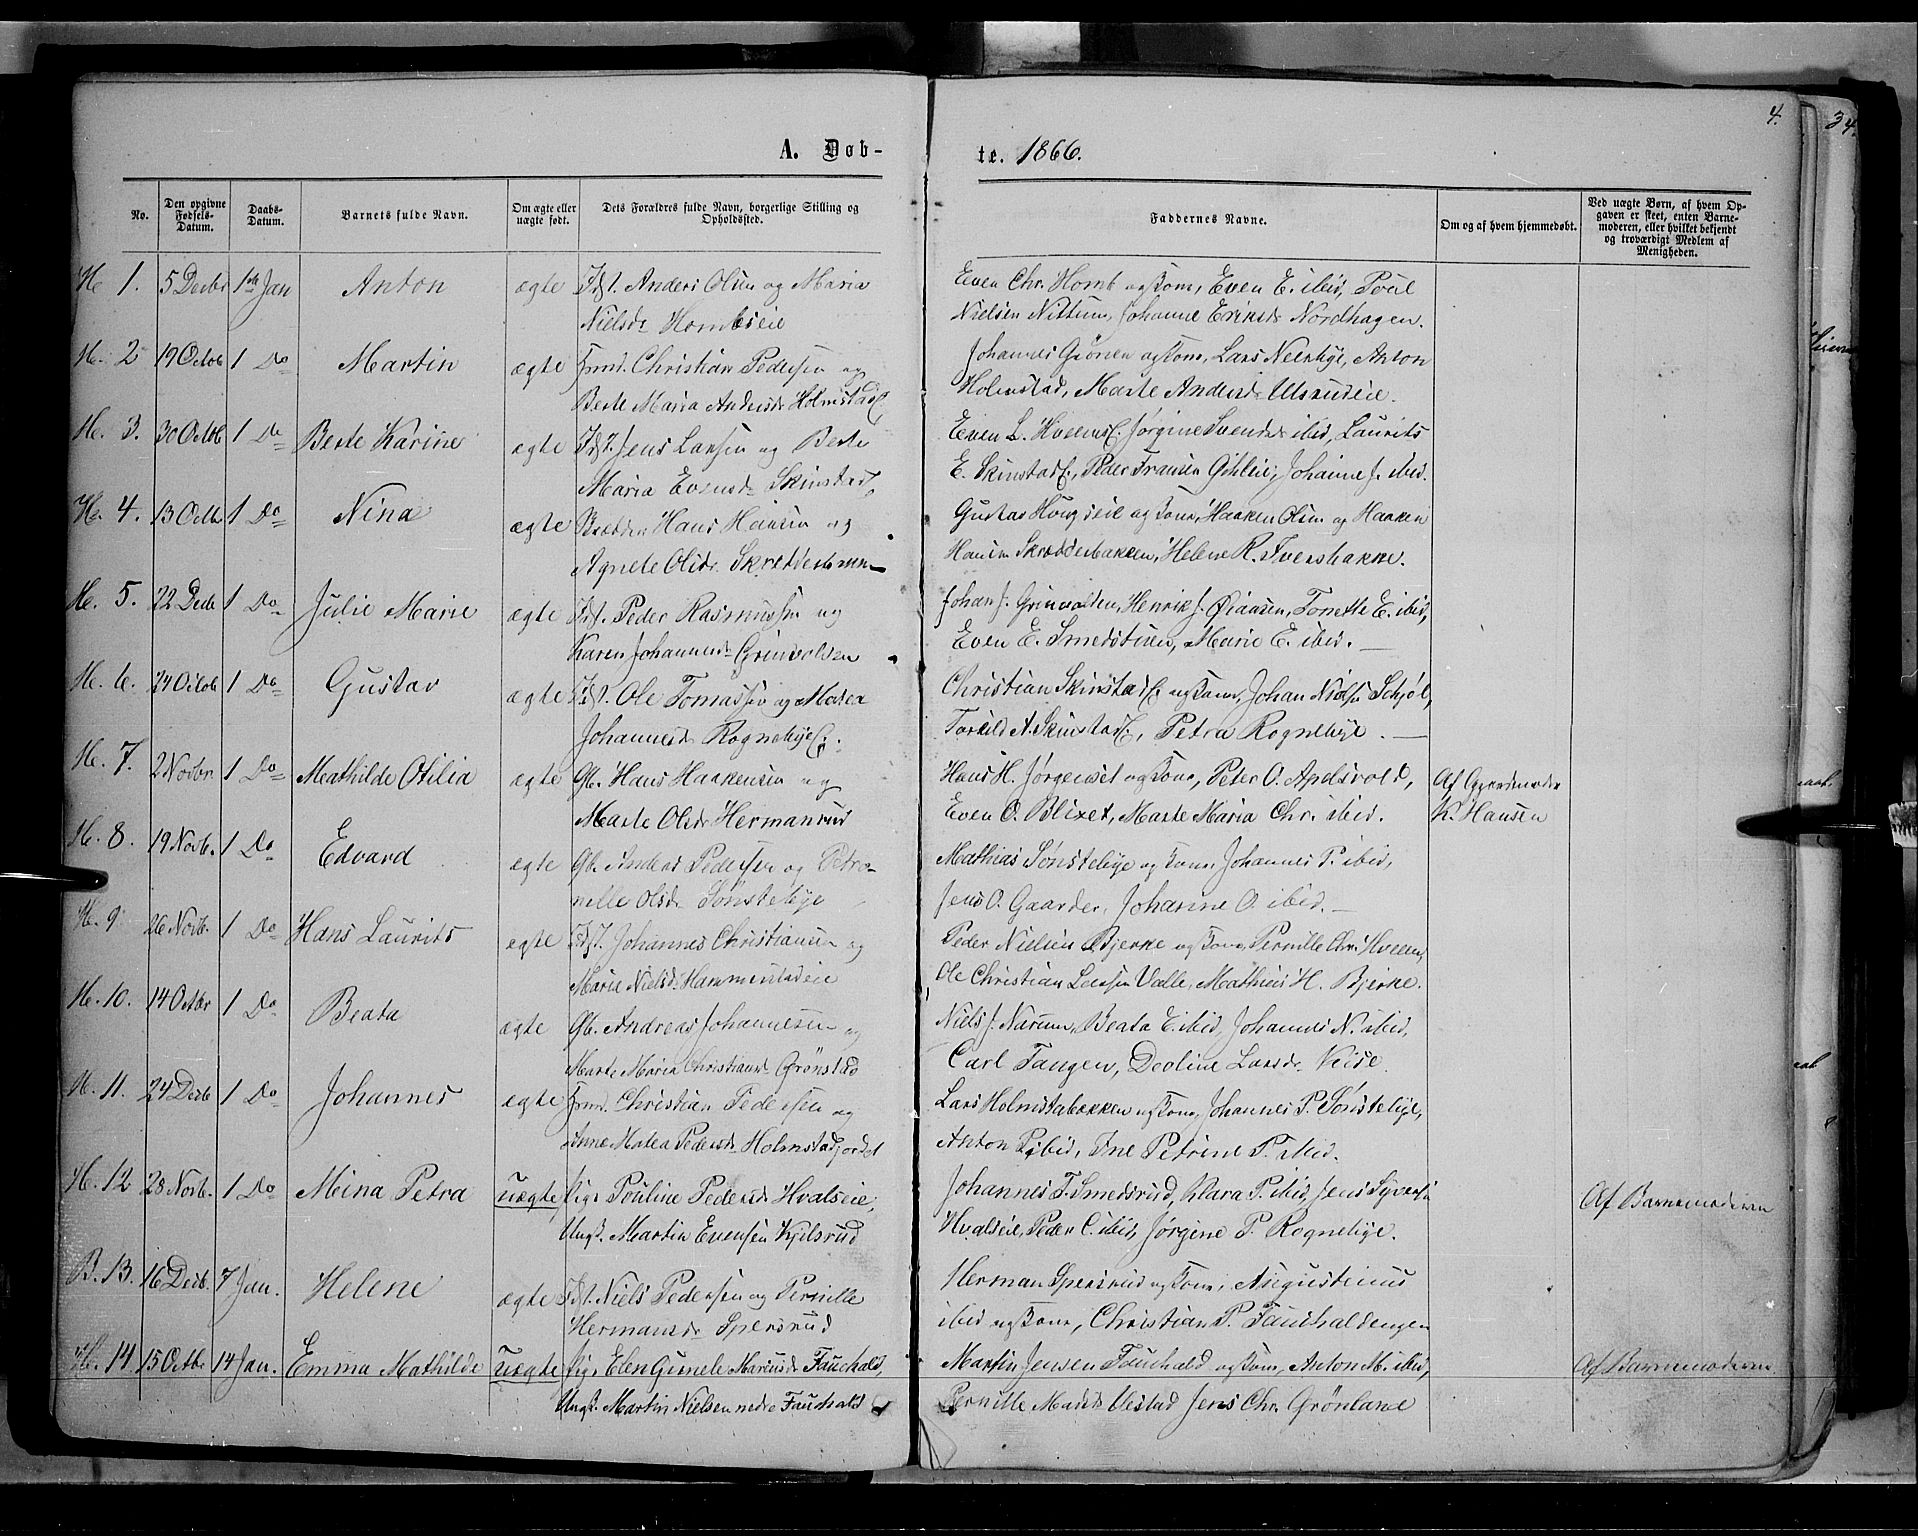 4.
34.
A. Døb-
te. 1866.
No.
Den opgivne Fødsels-Datum.
Daabs-Datum.
Barnets fulde Navn.
Om ægte eller uægte født.
Dets Forældres fulde Navn, borgerlige Stilling og Opholdssted.
Faddernes Navne.
Om og af hvem hjemmedøbt.
Ved uægte Børn, af hvem Op-
gaven er skeet, enten Barne-
moderen, eller hvilket bekjendt
og troværdigt Medlem af
Menigheden.
H. 1. 5 Decbr 1ste Jan Anton ægte Anders Olsen og Maria
Nielsdr Hombseie
Even Chr. Homb og Kone, Even E. ibid, Poul
Nielsen Nettum, Johanne Eriksdr Nordhagen.
H. 2 19 Octob 1 Do Martin ægte Christian Pedersen og
Berte Maria Andersdr Holmstad
Johannes Grønen og Kone, Lars Neerbye, Anton
Holmstad, Marte Andersdr Ulsrudeie.
H. 3. 30 Octob 1 Do Berte Karine ægte Jens Larsen og Berte
Maria Evensdr Skinstad
Even L. Hveems Jørgine Svendsdr ibid, Laurits
E. Skinstad, Peder Fransen Gihleie, Johanne J. ibid.
H. 4. 13 Octb 1 Do Nina ægte Hans Hansen og
Agnete Olsdr
Gustav og Kone, Haaken Olsen og Haaken
Hansen Skrædderbakken, Helene R. Tverrbakke.
H. 5. 22 Decb 1 Do Julie Marie ægte Peder Rasmussen og
Karen Johannesdr Grinvolden
Johan J. Grinvolden, Henrik J. Tonette E. ibid,
Even E. Smedstuen, Marie E. ibid.
H. 6. 24 Octob 1 Do Gustav ægte Ole Tomassen og Matea
Johannesdr Rognebye
Christian Skinstad og Kone, Johan Nielsen Schjøl,
Torkild A. Skinstad, Petra Rognebye.
H. 7. 2 Novbr 1 Do Mathilde Otilia ægte Gb. Hans Haakensen og
Marte Olsdr Hermanrud
Hans H. Jørgenset og Kone, Peter O. Apelsvold,
Even O. Blixet, Marte Maria Chr. ibid.
Af
K. Hansen
H. 8. 19 Novb. 1 Do Edvard ægte Gb. Anders Pedersen og Petro-
nelle Olsdr Sønstebye
Mathias Sønstebye og Kone, Johannes P. ibid,
Jens O. Gaarder, Johanne O. ibid.
H. 9 26 Novb. 1 Do Hans Laurits ægte Johannes Christiansen og
Marie Nielsdr Hammerstadeie
Peder Nielsen Bjerke og Kone, Pernille Chr. Hveem,
Ole Christian Larsen Valle, Mathias H. Bjerke.
H. 10. 14 Octbr 1 Do Beata ægte Gb. Andreas Johannesen og
Marte Maria Christiansdr Grønstad
Niels J. Narum, Beata E. ibid, Johannes N. ibid,
Carl Tangen, Deoline Larsdr Neise.
H. 11. 24 Decb 1 Do Johannes ægte Christian Pedersen og
Anne Matea Pedersdr Holmstadjordet
Lars Holmstabakken og Kone, Johannes P. Sønstebye,
Anton P. ibid, Ine Petrine P. ibid.
H. 12 28 Novb. 1 Do Meina Petra uægte Pige Pouline Pedersdr Hvalseie,
Ungk. Martin Evensen Kjelsrud
Johannes T. Smedsrud, Klara P. ibid, Jens Syversen
Hvalseie, Peder C. ibid, Jørgine P. Rognebye.
Af Barnemoderen
B. 13. 16 Decb. 7 Jan. Helene ægte Niels Pedersen og Pernille
Hermansdr Spersrud
Herman Spersrud og Kone, Augustinus
ibid og Kone, Christian P. Fauchaldengen
H. 14 15 Octbr 14 Jan. Emma Mathilde uægte Pige Elen Gunele Mariusdr Fauchald,
Ungk. Martin Nielsen nedre Fauchald
Martin Jensen Fauchald og Kone, Anton M. ibid,
Pernille Madsdr Vestad Jens Chr. Grønland
Af Barnemoderen